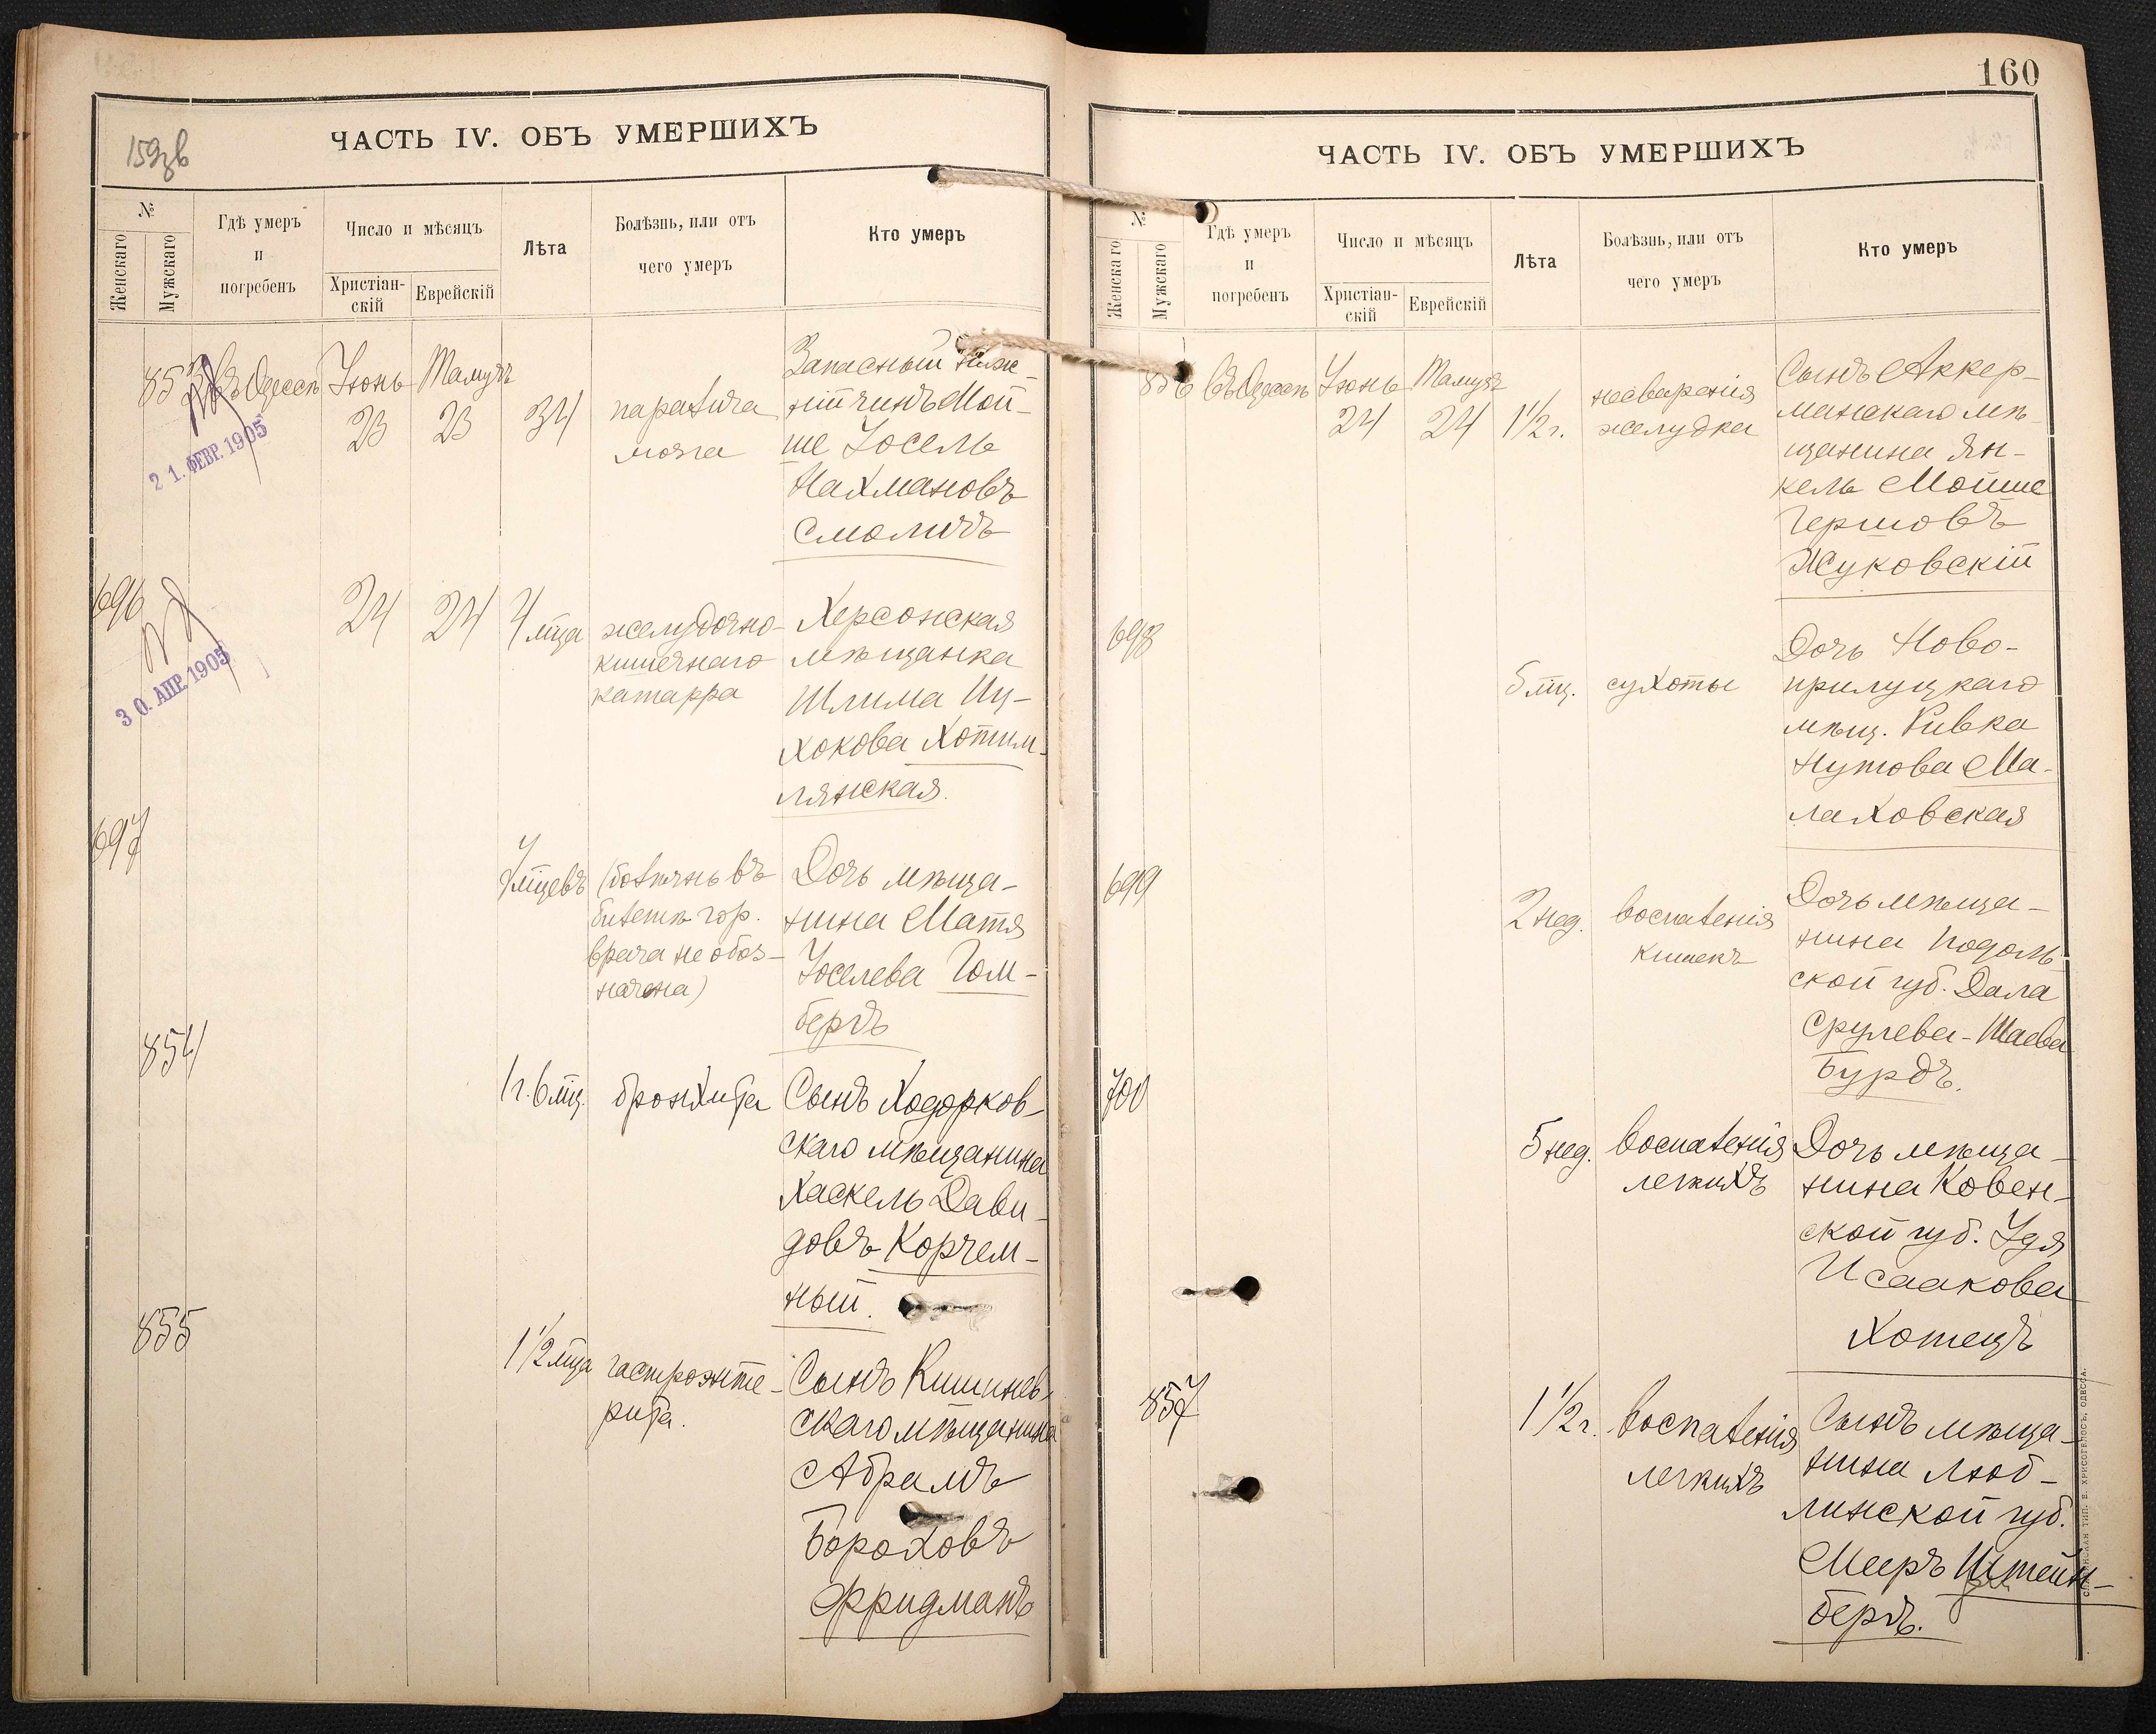 159об
ЧАСТЬ IV. ОБЪ УМЕРШИХЪ
№
Женскаго
Мужскаго
Гдѣ умеръ
и
погребенъ
Число и мѣсяцъ
Христіан-
скій
Еврейскій
Лѣта
Болѣзнь, или отъ
чего умеръ
Кто умеръ
853 въ Одессѣ Іюнь Тамузъ
23 23 34
паралича
мозга
Запасный ниж-
ній чинъ Мой-
ше Іосель
Нахмановъ
Смолигъ
21. ФЕВР. 1905
696 24 24 4 мца
желудочно-
кишечнаго
катарра
Херсонская
мѣщанка
Шлима Иц-
хокова Хотим-
лянская.
30. АПР. 1905
697
7 мцевъ
(болѣзнь въ
билетѣ гор.
врача не обоз-
начена)
Дочь мѣща-
нина Матя
Іоселева Гом-
бергъ
854
1 г. 6 мц. бронхита
Сынъ Ходорков-
скаго мѣщанина
Хаскель Дави-
довъ Корчем-
ный.
855
1 1/2 мца
гастроэнте-
рита.
Сынъ Кишинев-
скаго мѣщанина
Абрамъ
Бороховъ
Фридманъ
160
ЧАСТЬ IV. ОБЪ УМЕРШИХЪ
№
Женскаго
Мужскаго
Гдѣ умеръ
и
погребенъ
Число и мѣсяцъ
Христіан-
скій
Еврейскій
Лѣта
Болѣзнь, или отъ
чего умеръ
Кто умеръ
856 въ Одессѣ Іюнь Тамузъ
24 24 1 1/2 г.
несваренія
желудка
Сынъ Аккер-
манскаго мѣ-
щанина Ян-
кель Мойше
Гершовъ
Жуковскій
698
5 мц. сухоты
Дочь Ново-
прилуцкаго
мѣщ. Ривка
Нутова Ма-
лаховская
699
2 нед. воспаленія
кишекъ
Дочь мѣща-
нина Подоль-
ской губ. Дала
Срулева-Шаева
Бурдъ.
700
5 нед. воспаленія
легкихъ
Дочь мѣща-
нина Ковен-
ской губ. Удя
Исаакова
Хотецъ
857
1 1/2 г. воспаленія
легкихъ
Сынъ мѣща-
нина Люб-
линской губ.
Мееръ Штейн-
бергъ.